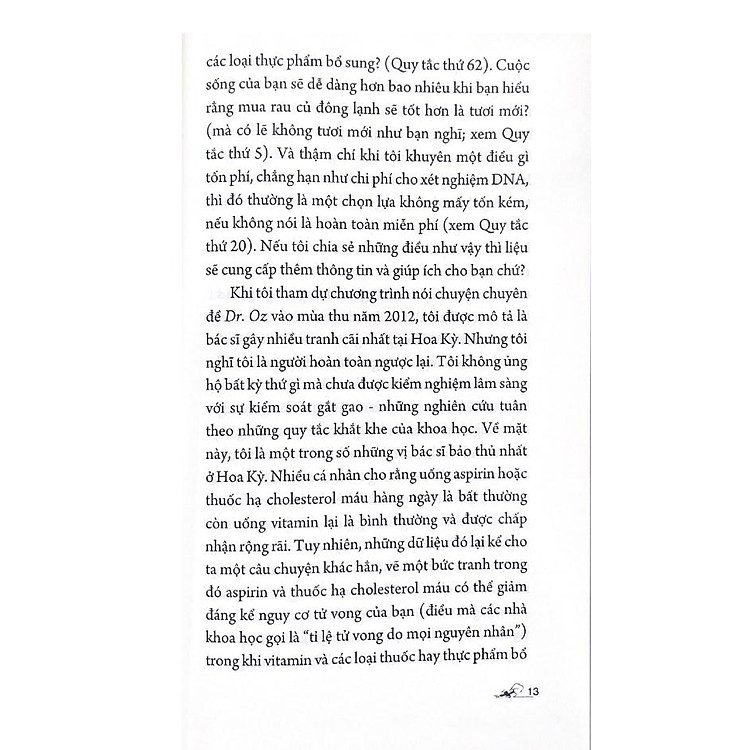 các loại thực phẩm bổ sung? (Quy tắc thứ 62). Cuộc
sống của bạn sẽ dễ dàng hơn bao nhiêu khi bạn hiểu
rằng mua rau củ đông lạnh sẽ tốt hơn là tươi mới?
(mà có lẽ không tươi mới như bạn nghĩ; xem Quy
tắc thứ 5). Và thậm chí khi tôi khuyên một điều gì
tốn phí, chẳng hạn như chi phí cho xét nghiệm DNA,
thì đó thường là một chọn lựa không mấy tốn kém,
nếu không nói là hoàn toàn miễn phí (xem Quy tắc
thứ 20). Nếu tôi chia sẻ những điều như vậy thì liệu
sẽ cung cấp thêm thông tin và giúp ích cho bạn chứ?
Khi tôi tham dự chương trình nói chuyện chuyên
đề Dr. Oz vào mùa thu năm 2012, tôi được mô tả là
bác sĩ gây nhiều tranh cãi nhất tại Hoa Kỳ. Nhưng tôi
nghĩ tôi là người hoàn toàn ngược lại. Tôi không ủng
hộ bất kỳ thứ gì mà chưa được kiểm nghiệm lâm sàng
với sự kiểm soát gắt gao - những nghiên cứu tuân
theo những quy tắc khắt khe của khoa học. Về mặt
này, tôi là một trong số những vị bác sĩ bảo thủ nhất
ở Hoa Kỳ. Nhiều cá nhân cho rằng uống aspirin hoặc
thuốc hạ cholesterol máu hàng ngày là bất thường
còn uống vitamin lại là bình thường và được chấp
nhận rộng rãi. Tuy nhiên, những dữ liệu đó lại kể cho
ta một câu chuyện khác hẳn, vẽ một bức tranh trong
đó aspirin và thuốc hạ cholesterol máu có thể giảm
đáng kể nguy cơ tử vong của bạn (điều mà các nhà
khoa học gọi là “tỉ lệ tử vong do mọi nguyên nhân”)
trong khi vitamin và các loại thuốc hay thực phẩm bổ
13